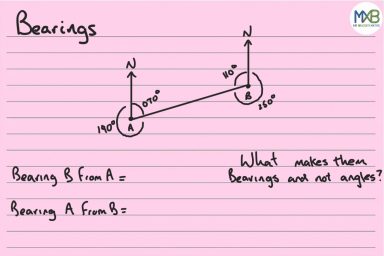 Bearings
MXB
N
N
110°
B
250°
070°
190°
A
Bearing B from A =
What makes them
Bearings and not angles?
Bearing A from B =